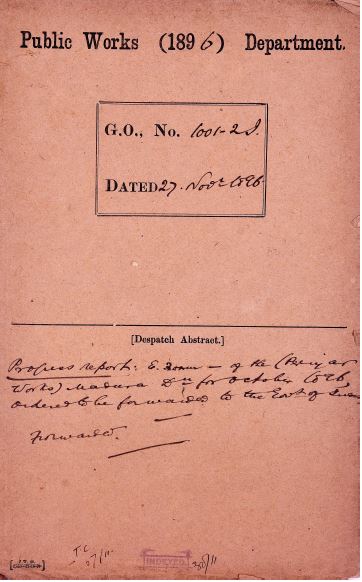 Public Works (1896) Department.
G.O., No. 1001-2 I.
DATED 27. Novr 1896.
[Despatch Abstract.]
Progress report: E. — of the (Periyar
Works) Madura Dn for October 1896,
ordered to be forwarded to the Govt of
Forwarded.
INDEXED
30/11